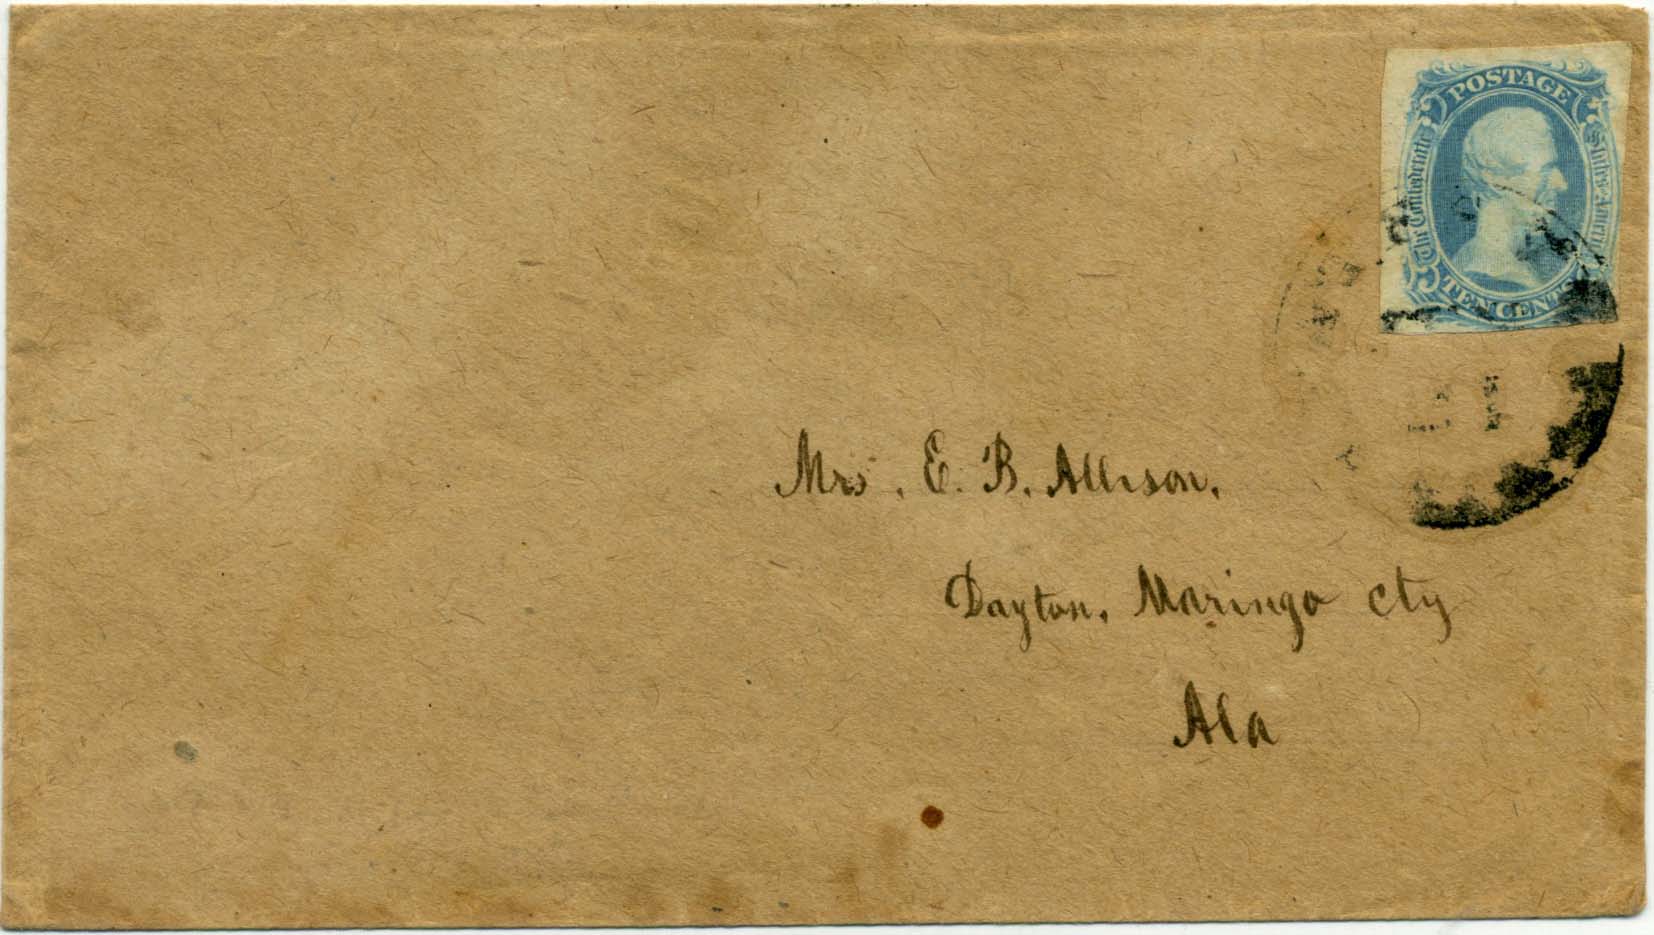 POSTAGE
The Confederate States America
TEN CENTS
Mrs. E. B. Allison.
Dayton. Maringo cty
Ala